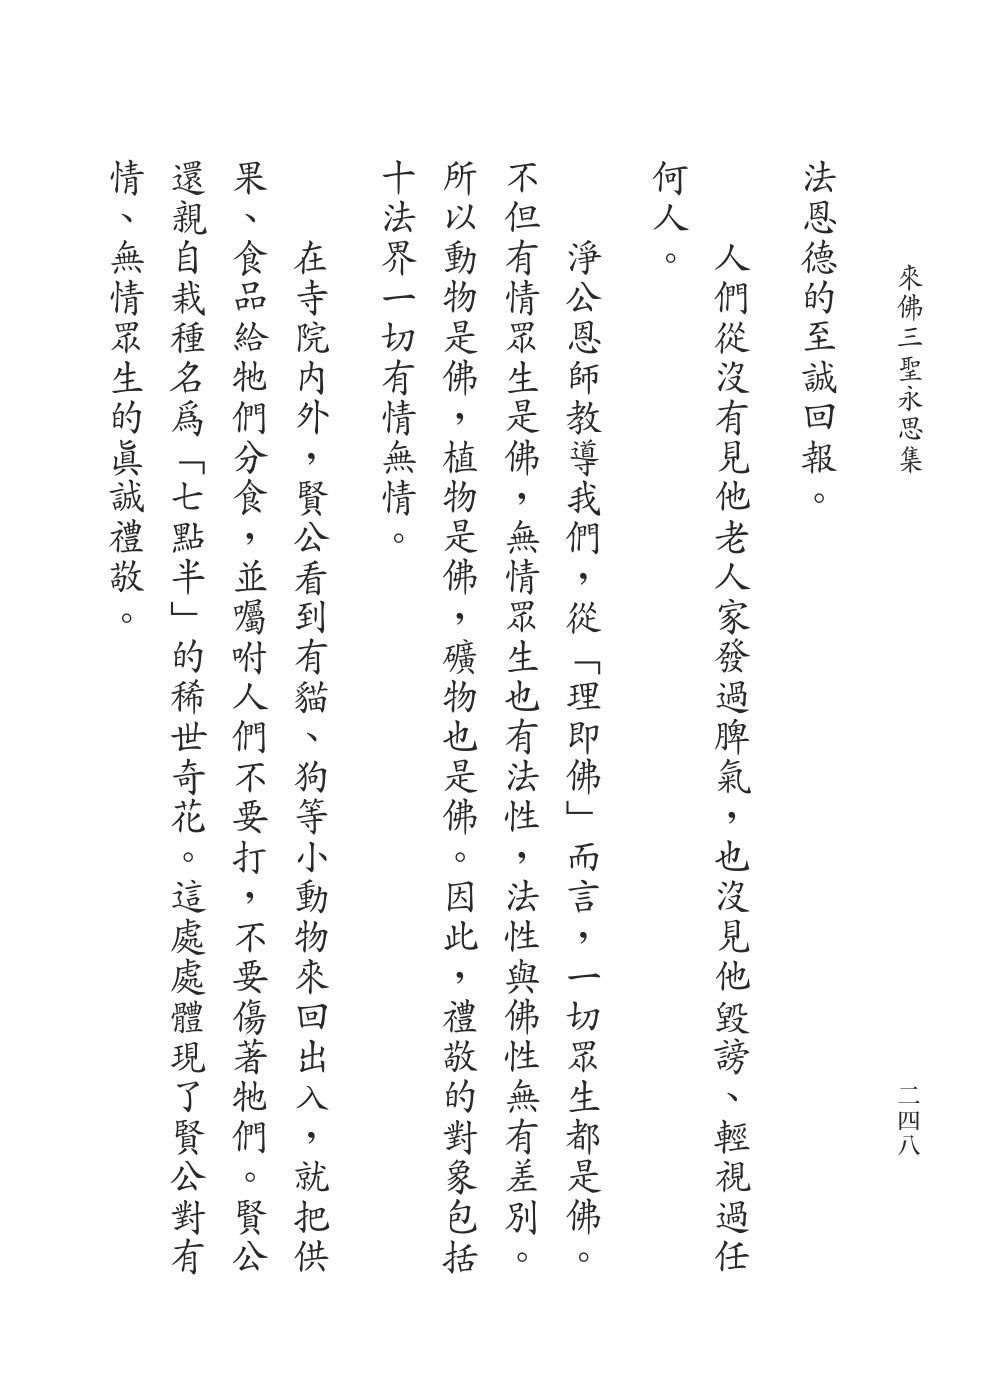 來佛三聖永思集
二四八
法恩德的至誠回報。
人們從沒有見他老人家發過脾氣，也沒見他毀謗、輕視過任
何人。
淨公恩師教導我們，從「理即佛」而言，一切眾生都是佛。
不但有情眾生是佛，無情眾生也有法性，法性與佛性無有差別。
所以動物是佛，植物是佛，礦物也是佛。因此，禮敬的對象包括
十法界一切有情無情。
在寺院內外，賢公看到有貓、狗等小動物來回出入，就把供
果、食品給牠們分食，並囑咐人們不要打，不要傷著牠們。賢公
還親自栽種名爲「七點半」的稀世奇花。這處處體現了賢公對有
情、無情眾生的眞誠禮敬。